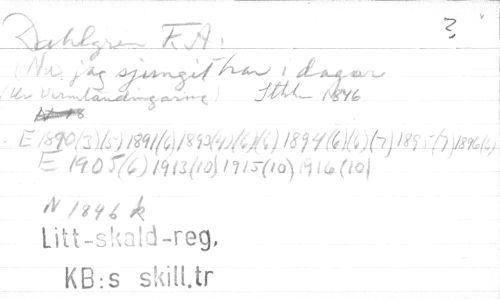 Dahlgren F. A: ?
(Nu jag sjungit har i dagar
(Ur Vermländingarne) Sthlm 1846
E 1890(3)(5) 1891(6) 1893(4)(6)(6) 1894(6)(6)(7) 1895(7) 1896(6)
E 1905(6) 1913(10) 1915(10) 1916(10)
N 1846 k
Litt-skald-reg.
KB:s skill.tr